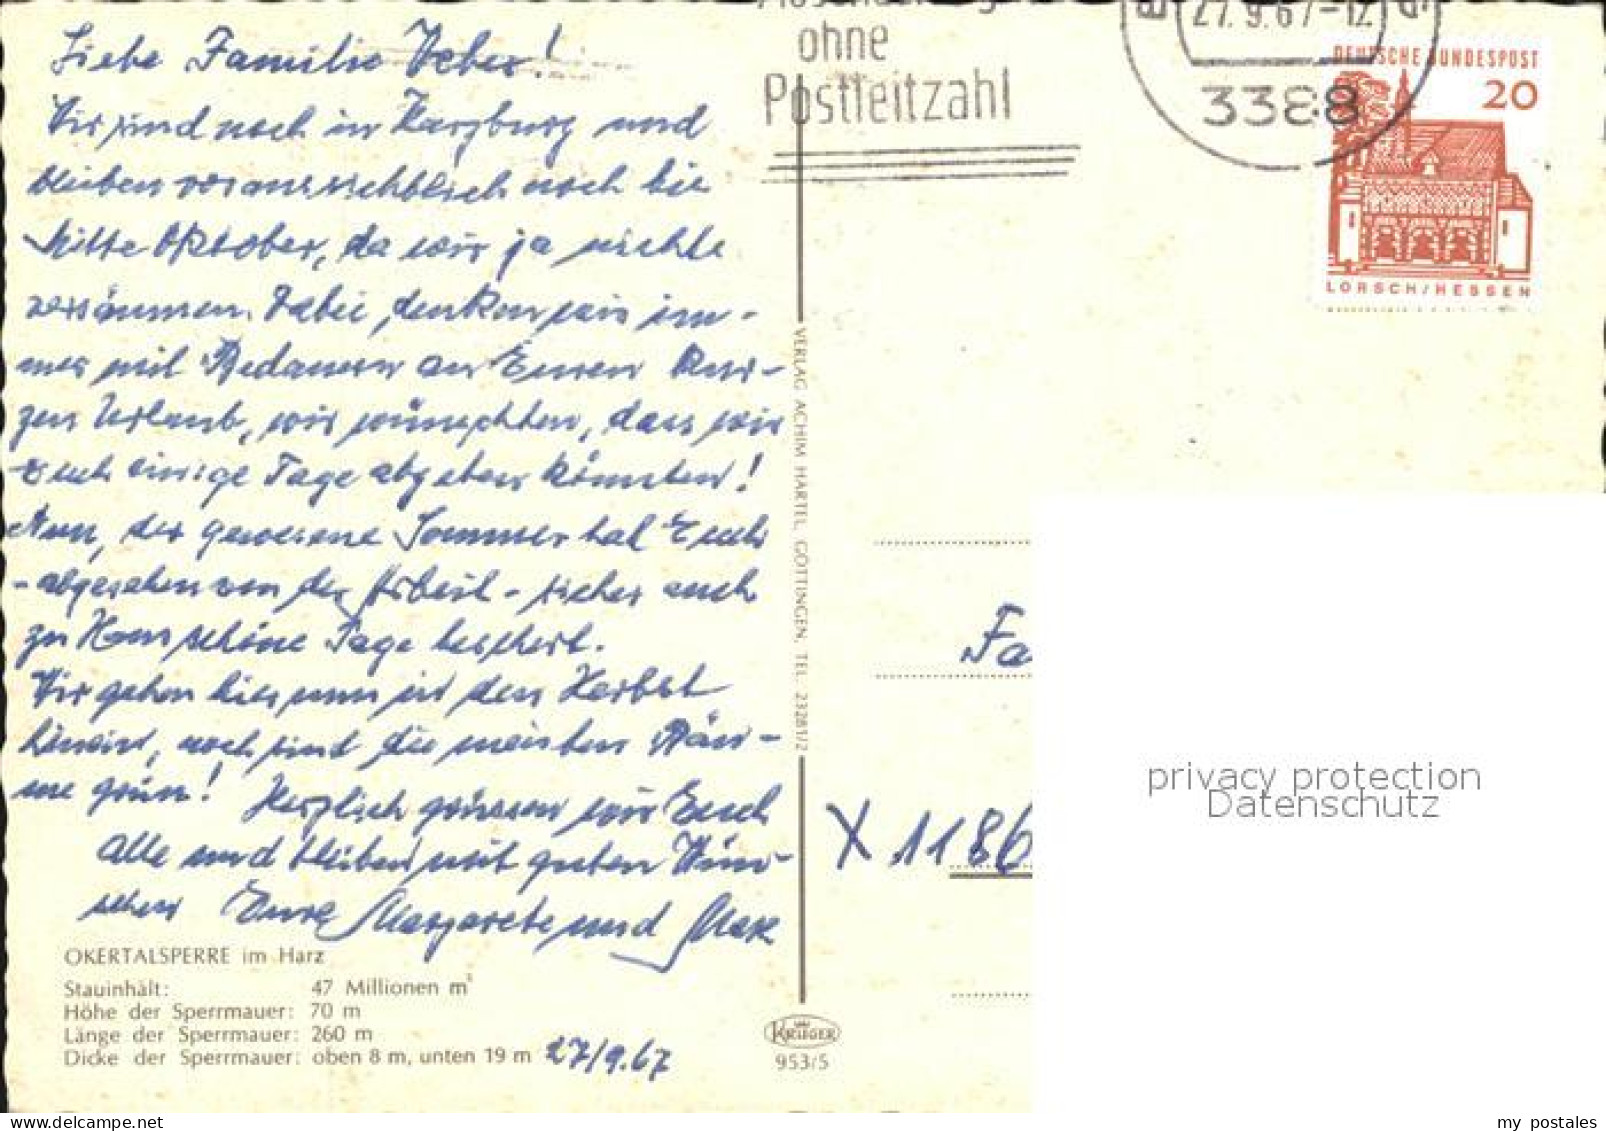 Liebe Familie Weber!
Wir sind noch in Harzburg und
bleiben voraussichtlich noch bis
Mitte Oktober, da wir ja nichts
versäumen. Dabei denken wir im-
mer mit Bedauern an Euren kur-
zen Urlaub, wir wünschten, dass wir
Euch einige Tage abgeben könnten!
Nun, der gewesene Sommer hat Euch
- abgesehen von der Arbeit - sicher auch
zu Haus schöne Tage beschert.
Wir gehen hier nun in den Herbst
hinein, noch sind die meisten Bäu-
me grün! Herzlich grüssen wir Euch
Alle und bleiben mit guten Wün-
schen Eure Margarete und Max
OKERTALSPERRE im Harz
Stauinhalt: 47 Millionen m³
Höhe der Sperrmauer: 70 m
Länge der Sperrmauer: 260 m
Dicke der Sperrmauer: oben 8 m, unten 19 m 27/9.67
VERLAG ACHIM HARTEL, GÖTTINGEN, TEL. 23281/2
KRÜGER
953/5
ohne
Postleitzahl
27.9.67-12
3388
DEUTSCHE BUNDESPOST
20
LORSCH/HESSEN
Fa
X 1186
privacy protection
Datenschutz
my postales